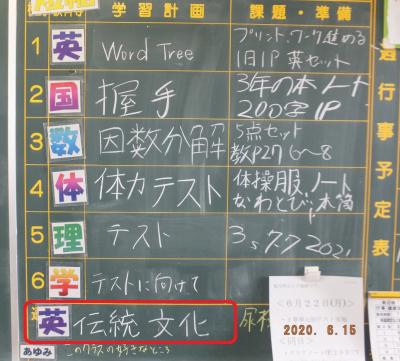 学習計画 課題・準備
1 英 Word Tree プリント、ワーク進める
1日1P 英セット
2 国 握手 3年の本ノート
200字1P
3 数 因数分解 5点セット
教P27 6~8
4 体 体力テスト 体操服、ノート
なわとび、本筒
5 理 テスト
6 学 テストに向けて
英 伝統文化
あゆみ このクラスの好きなところ
週行事予定表
<6月22日(月)>
2020. 6.15